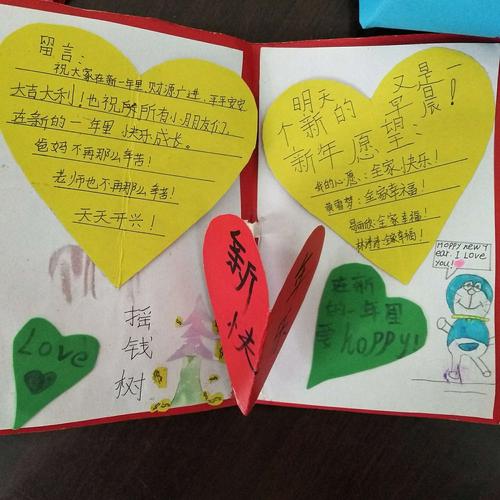 留言：
祝大家在新一年里，财源广进，平平安安
大吉大利！也祝所有小朋友们，
在新的一年里 快乐成长。
爸妈不再那么辛苦！
老师也不再那么辛苦！
天天开兴！
Love
摇
钱
树
新
快
明天又是一
个新的早晨！
新年愿望：
我的心愿：全家快乐！
全家幸福！
全家幸福！
全家幸福！
在新
的一年里
要hoppy!
Hoppy new y
ear. I Love
you!